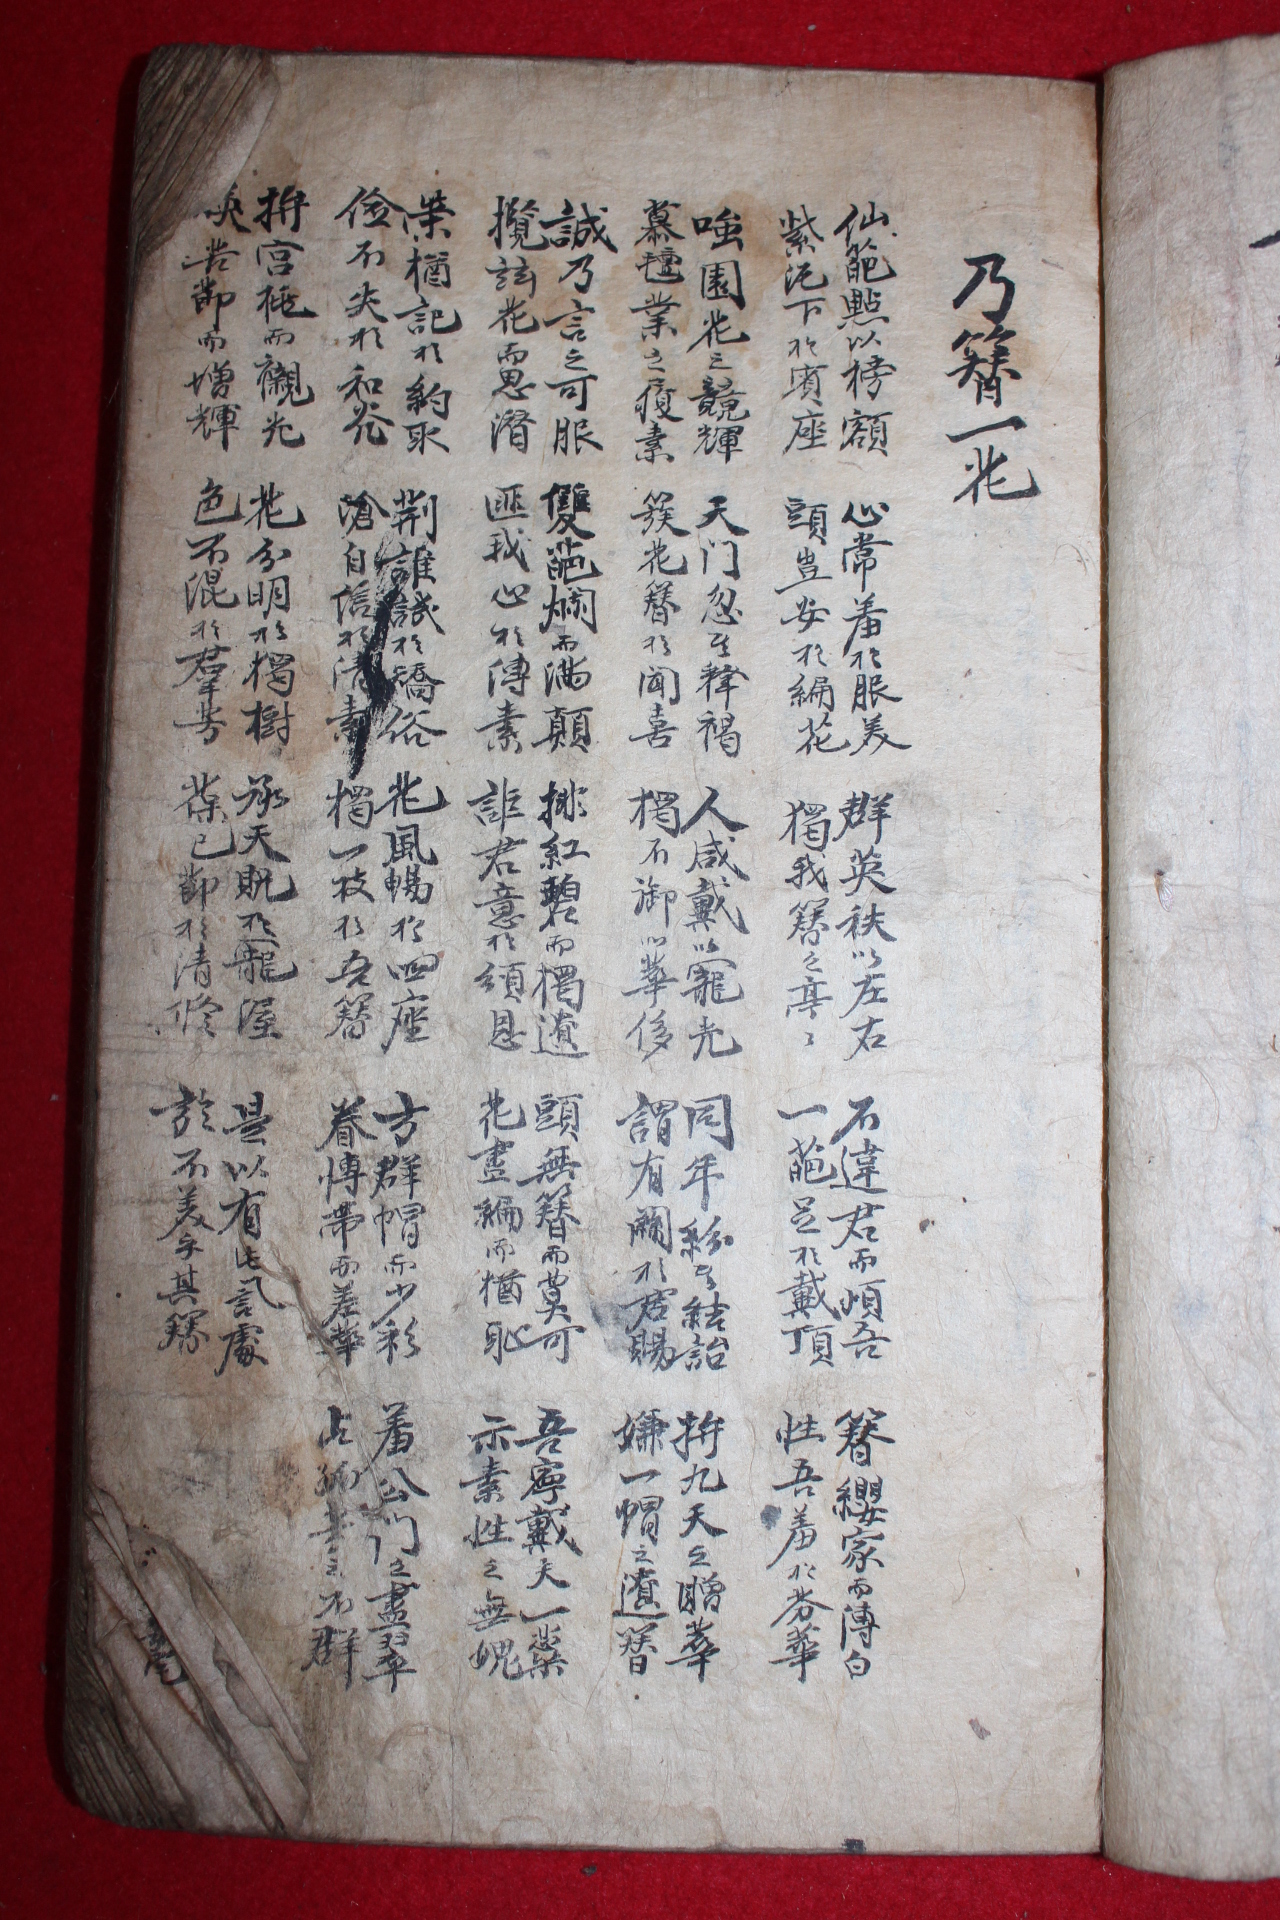 乃簪一花
仙葩點以榜額 心常羞於服美 群英秩以左右 不違君而煩吾 簪纓家而傳白
紫泥下於賓座 頭豈安於編花 獨我簪之亭〻 一葩足於戴頂 性吾羞於芬華
嗤園花之競輝 天门忽其釋褐 人咸戴以寵光 同年紛其結詒 拚九天之贈華
慕氊業之復素 簇花簪於聞喜 獨不御以華侈 謂有關於君賜 嫌一帽之遺簪
誠乃言之可服 雙葩爛而滿顛 排紅碧而獨遺 頭無簪而莫可 吾寧戴天一蘂
攬玆花而思潛 匪我心於傳素 詎君意於頒恩 花盡編而猶恥 示素性之無愧
榮猶記於約取 荆誰識於矯俗 花風暢於四座 方群帽而少彩 羞公门之盡翠
儉不失於和光 滄自信於清素 獨一枝於吾簪 眷愽帶而差華 占之不群
拚宮桃而襯光 花分明於獨樹 承天貺於寵渥 是以有此記處
若節而增輝 色不混於羣芳 葆己節於清修 於不美乎其簪